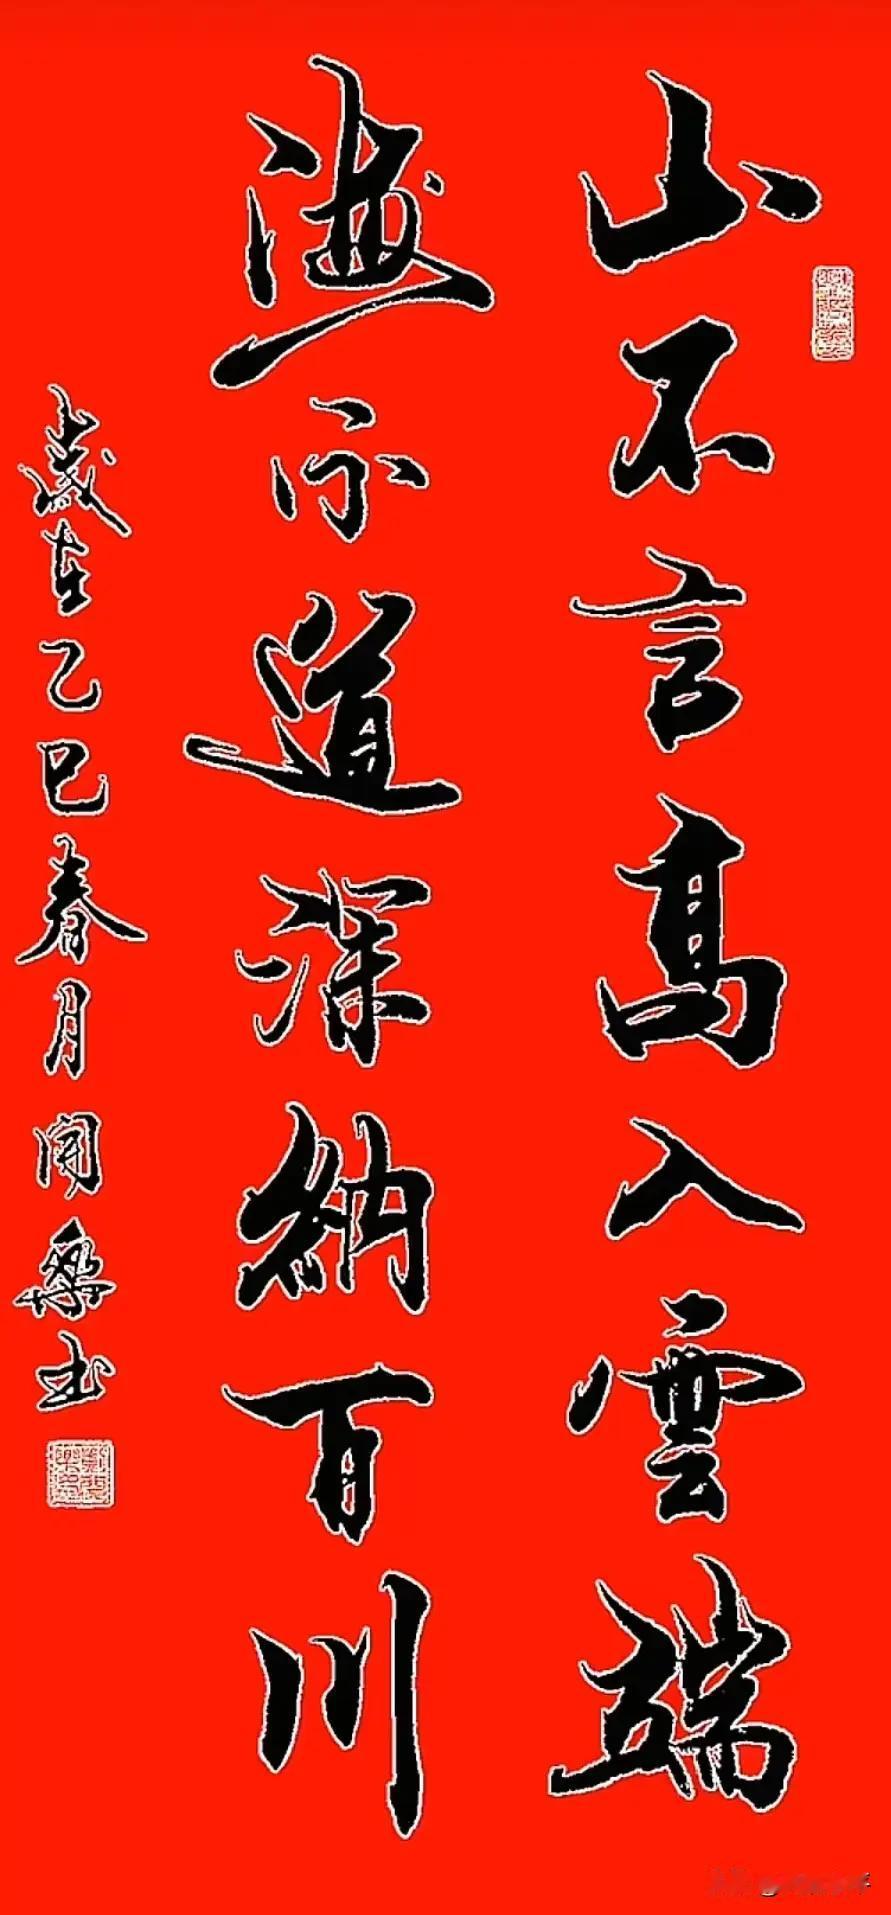 山不言高入雲端
海不道深納百川
歲在乙巳春月閒樂书